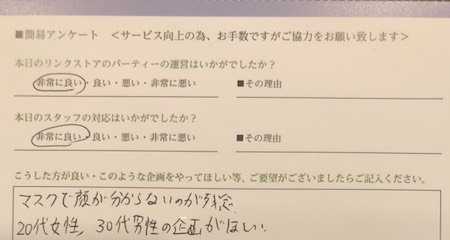 ■簡易アンケート <サービス向上の為、お手数ですがご協力をお願い致します>
本日のリンクストアのパーティーの運営はいかがでしたか?
非常に良い・良い・悪い・非常に悪い ■その理由
本日のスタッフの対応はいかがでしたか?
非常に良い・良い・悪い・非常に悪い ■その理由
こうした方が良い・このような企画をやってほしい等、ご要望がございましたらご記入ください。
マスクで顔が分からないのが残念
20代女性，30代男性の企画がほしい